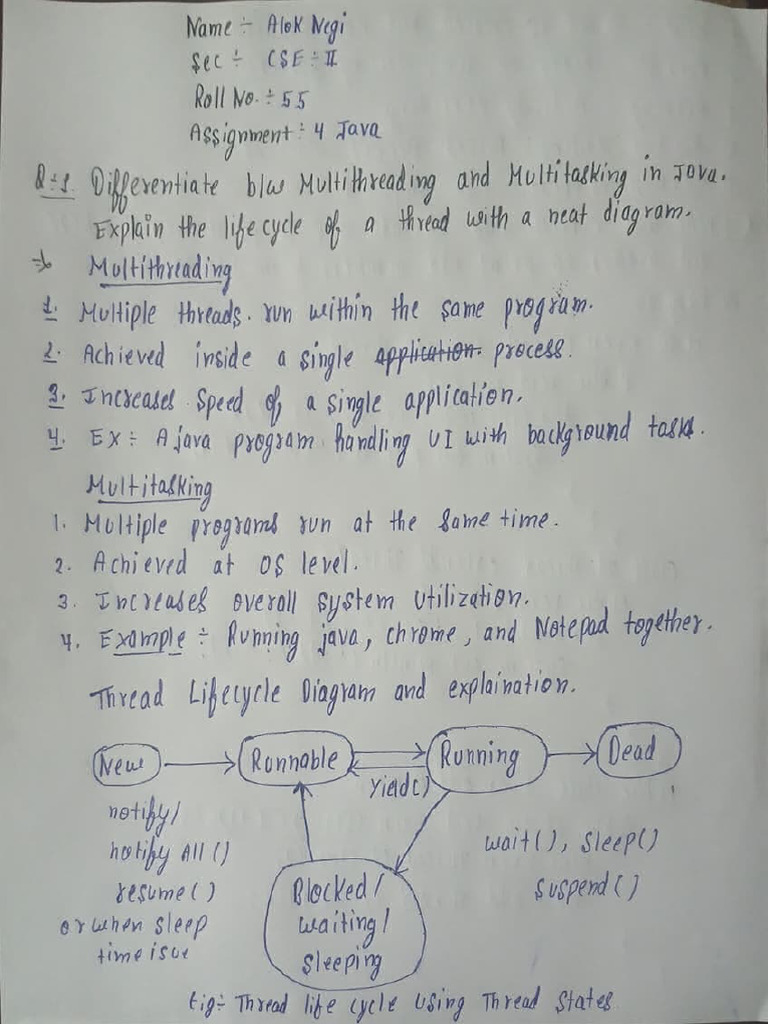 Name ÷ Alok Negi
Sec ÷ CSE ÷ II
Roll No. ÷ 55
Assignment ÷ 4 Java
Q÷1. Differentiate b/w Multithreading and Multitasking in Java.
Explain the life cycle of a thread with a neat diagram.
⇒ Multithreading
1. Multiple threads. run within the same program.
2. Achieved inside a single application. process.
3. Increases Speed of a single application.
4. Ex ÷ A java program handling UI with background tasks.
Multitasking
1. Multiple programs run at the same time.
2. Achieved at OS level.
3. Increases overall system utilization.
4. Example ÷ Running java, chrome, and Notepad together.
Thread Lifecycle Diagram and explaination.
New
Runnable
Running
Dead
Yield()
notify/
notify All ()
resume()
or when sleep
time is
wait(), sleep()
suspend()
Blocked/
waiting/
sleeping
fig÷ Thread life cycle using Thread States